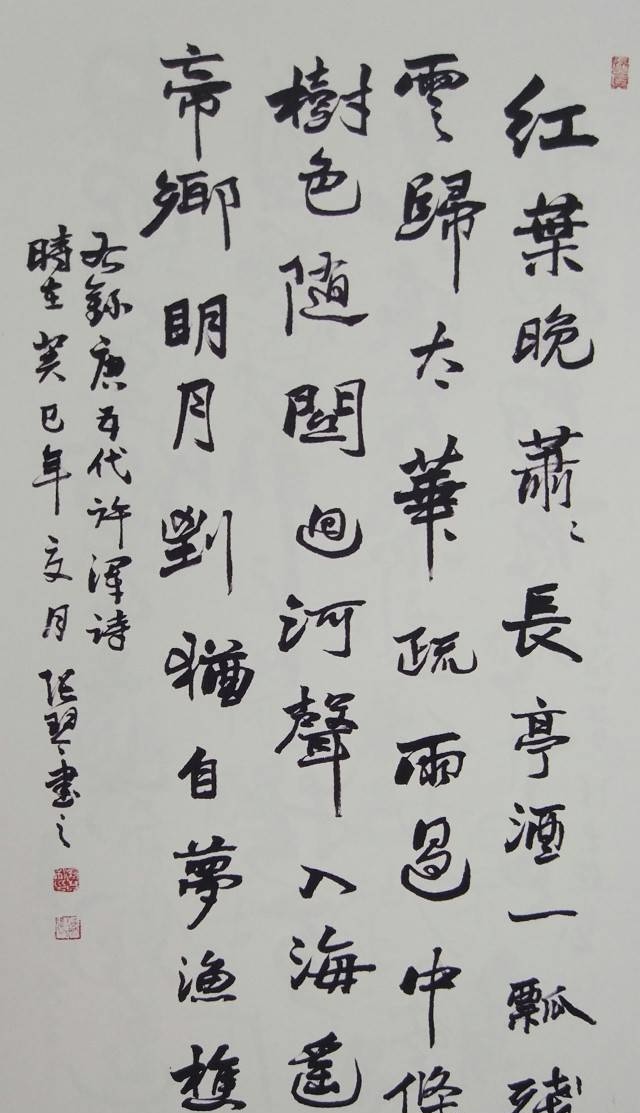 紅葉晚蕭〻長亭酒一瓢殘
雲歸太華疏雨過中條
樹色随關迥河聲入海遥
帝鄉明月到猶自夢漁樵
右録唐五代许渾诗
時在癸巳年 月 書之